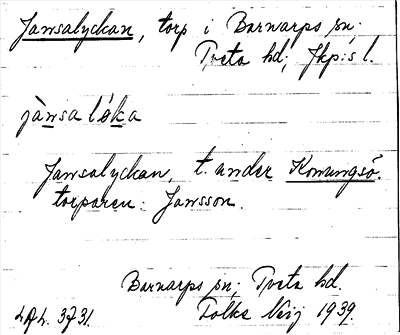 Jansalyckan, torp i Barnarps sn;
Tveta hd; Jkp:s l.
jànsa lỏka
Jansalyckan, t. under Konungsö.
torparen: Jansson.
Barnarps sn; Tveta hd.
3731. Folke 1939.